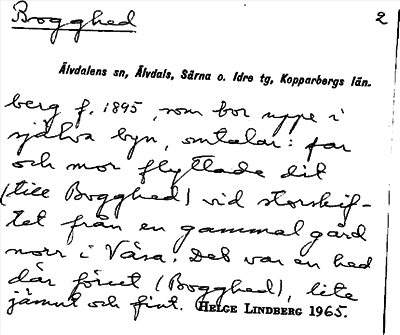 Bogghed 2
Älvdalens sn, Älvdals, Särna o. Idre tg, Kopparbergs län.
berg f. 1895, som bor uppe i
själva byn, omtalar: far
och mor flyttade dit
(till Bogghed) vid storskif-
tet från en gammal gård
norr i Våsa. Det var en hed
där förut (Bogghed), lite
jämnt och fint. HELGE LINDBERG 1965.